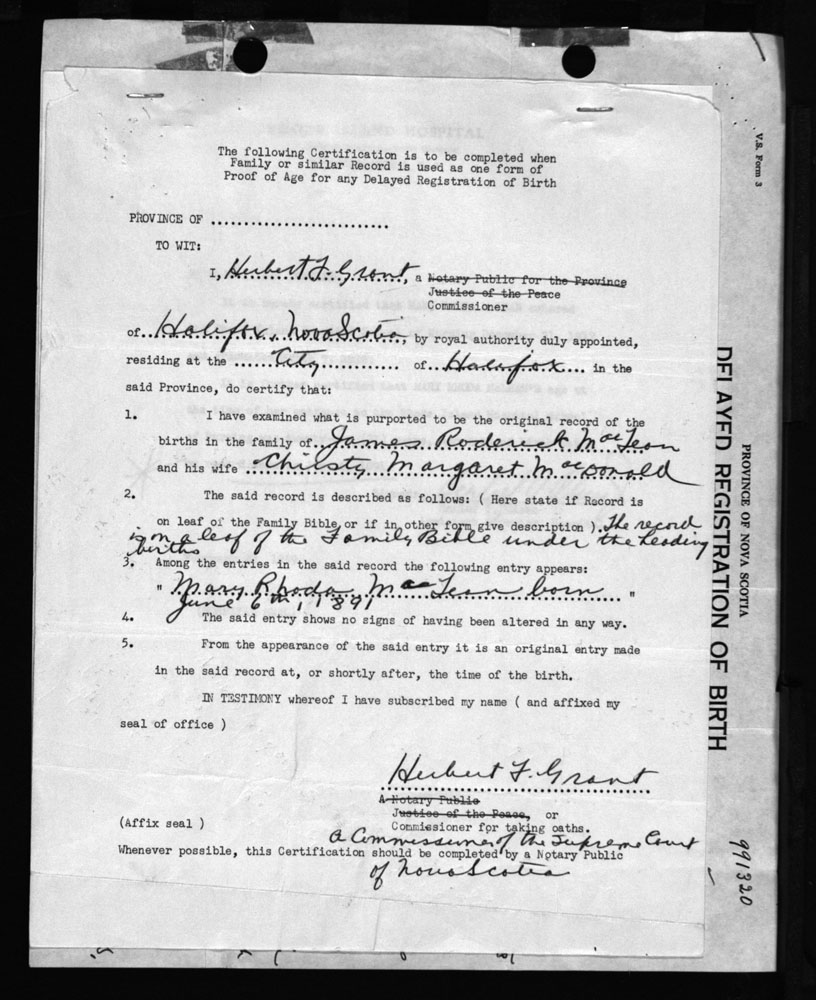 The following Certification is to be completed when
Family or similar Record is used as one form of
Proof of Age for any Delayed Registration of Birth
PROVINCE OF ..........................
TO WIT:
I, Herbert F. Grant, a Notary Public for the Province
Justice of the Peace
Commissioner
of Halifax, Nova Scotia, by royal authority duly appointed,
residing at the ...... City .............. of.. Halifax.... in the
said Province, do certify that:
1. I have examined what is purported to be the original record of the
births in the family of.. James Roderick MacLean
and his wife Christy Margaret MacDonald
2. The said record is described as follows: ( Here state if Record is
on leaf of the Family Bible or if in other form give description ). The record
is on a leaf of the Family Bible under the heading
births
3. Among the entries in the said record the following entry appears:
" Mary Rhoda MacLean born ... "
June 6th, 1891
4. The said entry shows no signs of having been altered in any way.
5. From the appearance of the said entry it is an original entry made
in the said record at, or shortly after, the time of the birth.
IN TESTIMONY whereof I have subscribed my name ( and affixed my
seal of office )
Herbert F. Grant
A Notary Public
Justice of the Peace, or
(Affix seal ) Commissioner for taking oaths.
a Commissioner of the Supreme Court
Whenever possible, this Certification should be completed by a Notary Public
of Nova Scotia
V.S. Form 3
PROVINCE OF NOVA SCOTIA
DELAYED REGISTRATION OF BIRTH
991320